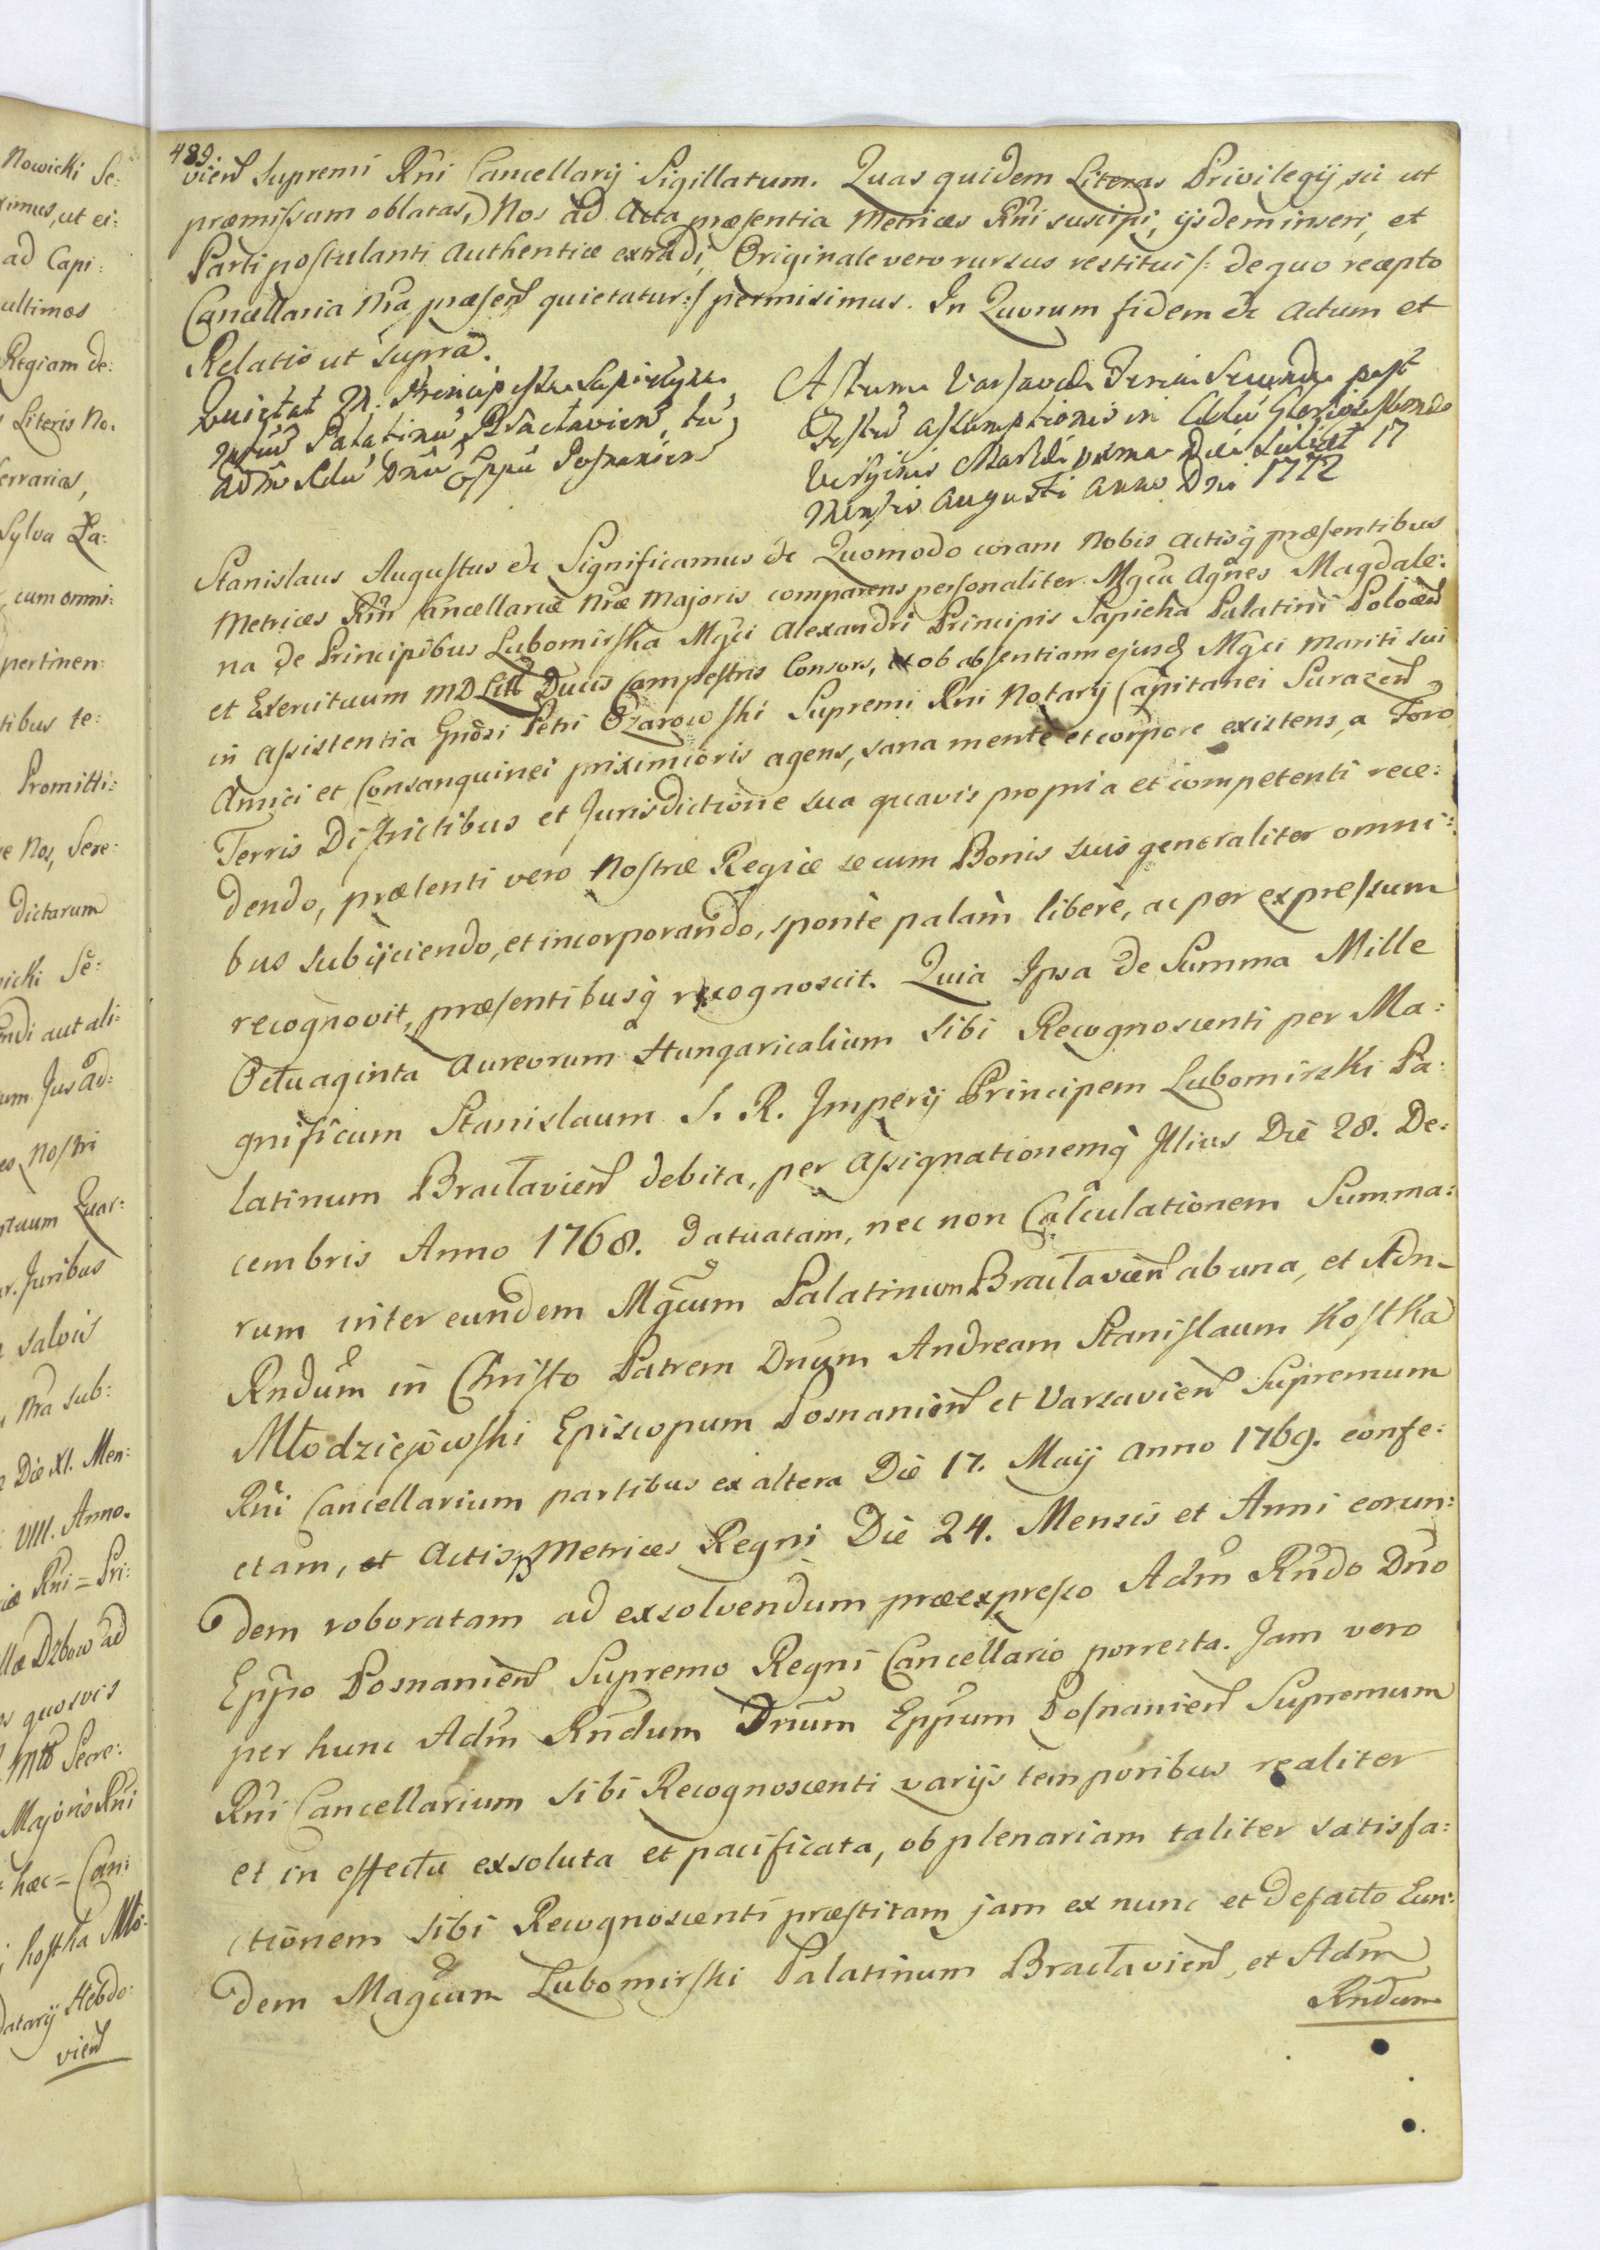 Nowicki Se:
ximus, ut ei:
ad Capi:
ultimos
Regiam de:
Literis No.
ferrarias,
Sylva Za:
cum omni:
pertinen:
tibus te:
Promitti:
Nos, Sere:
dictarum
Sê:
aut ali:
um Jus ad:
Nostri
Quar:
Juribus
salvis
Nra sub:
Die XI. Men:
VIII. Anno.
Rni = Pri:
Dzbow ad
quosvis
Secre:
Majoris Rni
hæc = Can:
Kostka Mło:
datarij Hebdo:
vien̄
489.
vien̄ Supremi Rñi Cancellarij Sigillatum. Quas quidem Literas Privilegij, sic ut
præmissum oblatas, Nos ad Acta præsentia Metrices Rñi suscipi, ijsdem inseri, et
Parti postulanti Authentice extradi, Originale vero rursus restitui /: de quo recepto
Cancellaria Nra præsen̄ quietatur :/ permisimus. In Quorum fidem &c Actum et
Relatio ut supra.
Quietat M. Principissa Sapiehyna
Mgñum Palatinũ Bractavien̄, tũ
Adm̃ Rdũ Dnũ Eppũ Posnanien̄
Actum Varsaviæ Feria Secunda post
Festũ Assumptionis in Cælũ Gloriosissimæ
Virginis Mariæ prima Die scilicet 17
Mensis Augusti Anno Dni 1772
Stanislaus Augustus &c Significamus &c Quomodo coram Nobis Actisq̃ præsentibus
Metrices Rñi Cancellariæ Nræ Majoris comparens personaliter Mgca Agnes Magdale:
na de Principibus Lubomirska Mgci Alexandri Principis Sapieha Palatini Polocen̄
et Exercituum M D Litt Ducis Campestris Consors, ob absentiam ejusd̃ Mgci Mariti sui
in Assistentia Gñosi Petri Ożarowski Supremi Rni Notarij Capitanei Surazen̄
Amici et Consanguinei priximioris agens, sana mente et corpore existens, a Foro
Terris Districtibus et Jurisdictione sua quavis propria et competenti rece:
dendo, præsenti vero Nostræ Regiæ se cum Bonis suis generaliter omni:
bus subijciendo, et incorporando, sponte palam libere, ac per expressum
recognovit, præsentibusq̃ recognoscit. Quia Ipsa de Summa Mille
Octuaginta Aureorum Hungaricalium sibi Recognoscenti per Ma:
gnificum Stanislaum S. R. Imperij Principem Lubomirski Pa:
latinum Bractavien̄ debita, per Assignationemq̃ Illius Die 28. De:
cembris Anno 1768. datuatam, nec non Calculationem Summa:
rum inter eundem Mgcum Palatinum Bractavien̄ ab una, et Adm̃
Rndum in Christo Patrem Dnum Andream Stanislaum Kostka
Młodziejowski Episcopum Posnanien̄ et Varsavien̄ Supremum
Rñi Cancellarium partibus ex altera Die 17. Maij Anno 1769. confe:
ctam, et Actis Metrices Regni Die 24. Mensis et Anni eorun:
dem roboratam ad exsolvendum præexpresso Adm̃ Rndo Dno
Eppo Posnanien̄ Supremo Regni Cancellario porrecta. Jam vero
per hunc Adm̃ Rndum Dnum Eppum Posnanien̄ Supremum
Rñi Cancellarium sibi Recognoscenti varijs temporibus realiter
et in effectu exsoluta et pacificata, ob plenariam taliter satisfa:
ctionem sibi Recognoscenti præstitam jam ex nunc et de facto Eun:
dem Magcum Lubomirski Palatinum Bractavien̄, et Adm̃
Rndum